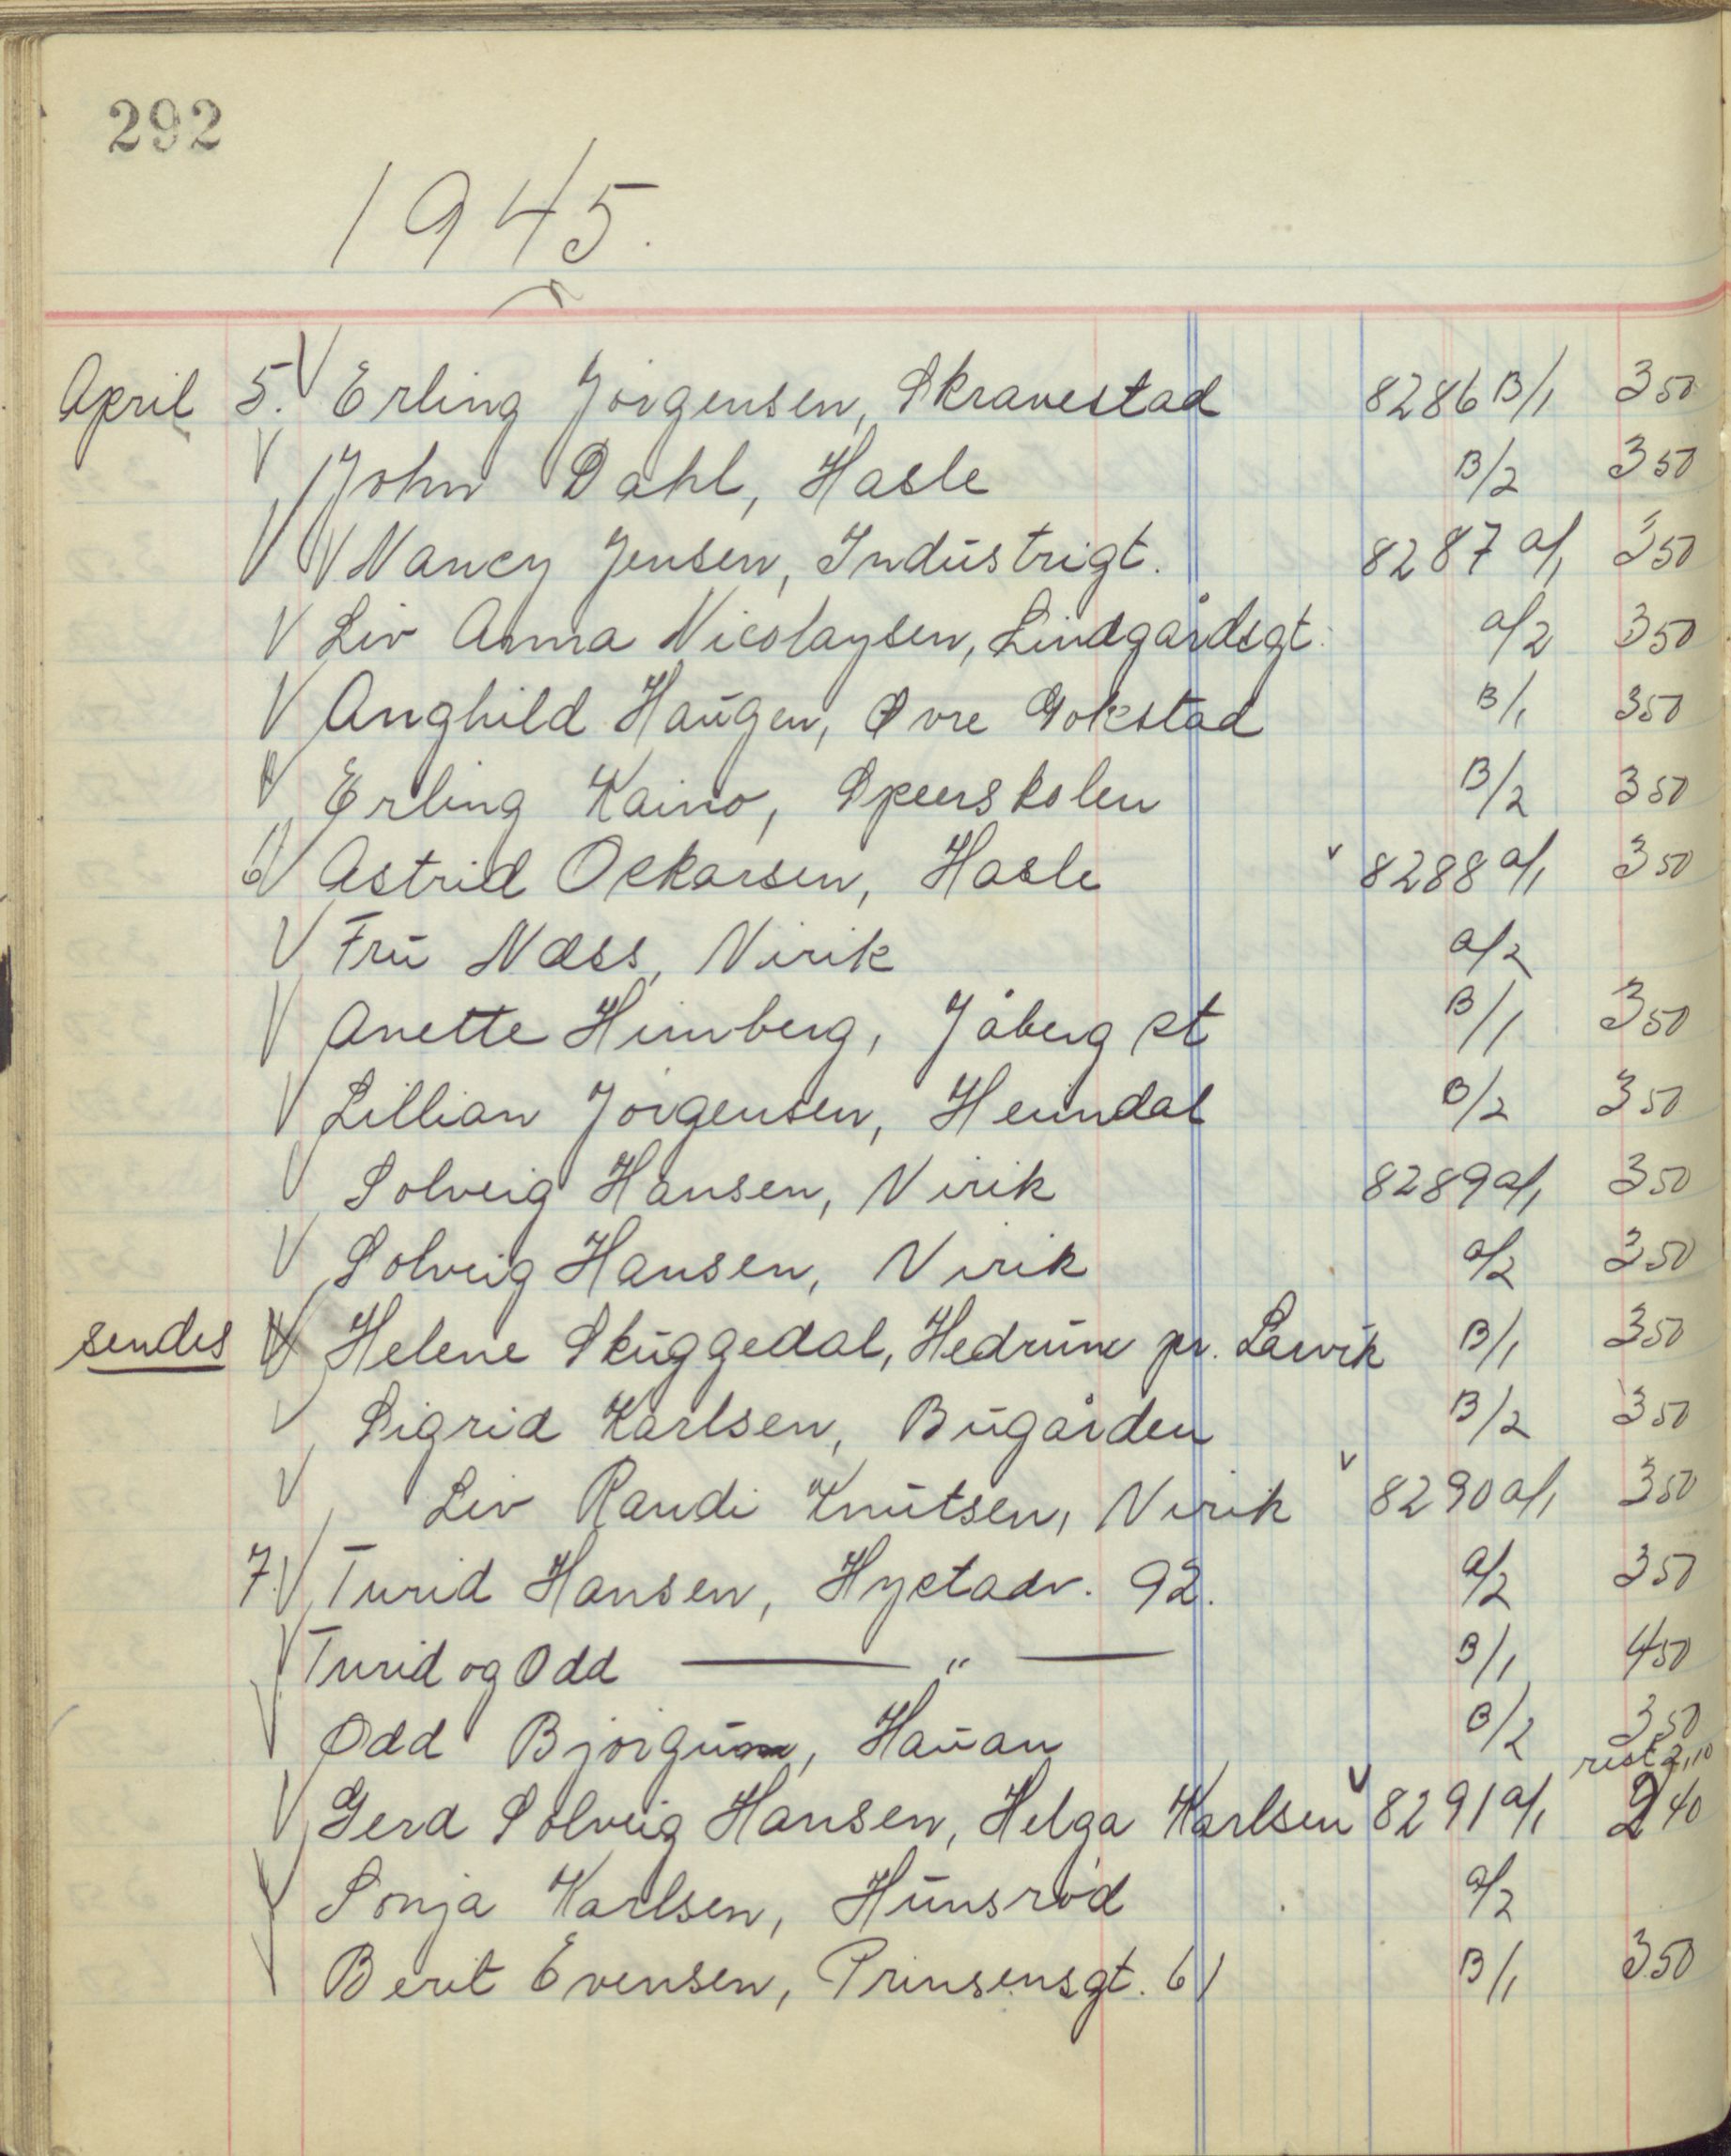 292
1945.
April 5. V Erling Jörgensen, Skravestad 8286 B/1 3 50
V John Dahl, Hasle B/2 3 50
V V Nancy Jensen, Industrigt. 8287 a/1 3 50
V Liv Anna Nicolaysen, Lindgårdsgt. a/2 3 50
V Anghild Haugen, Øvre Gokstad B/1 3 50
V Erling Kaino, Speerskolen B/2 3 50
6 V Astrid Oskarsen, Hasle v 8288 a/1 3 50
V Fru Næss, Virik a/2
V Anette Himberg, Jåberg st B/1 3 50
V Lillian Jörgensen, Heimdal B/2 3 50
V Solveig Hansen, Virik 8289 a/1 3 50
V Solveig Hansen, Virik a/2 3 50
sendes V Helene Skuggedal, Hedrum pr. Larvik B/1 3 50
V Sigrid Karlsen, Bugården B/2 3 50
V Liv Randi Knutsen, Virik v 8290 a/1 3 50
7. V Turid Hansen, Hystadv. 92. a/2 3 50
V Turid og Odd — " — B/1 4 50
V Odd Bjørgum, Hauan B/2 3 50
rest 2,10
V Gerd Solveig Hansen, Helga Karlsen v 8291 a/1 2 40
V Sonja Karlsen, Hunsrød a/2
V Berit Evensen, Prinsensgt. 61 B/1 3 50